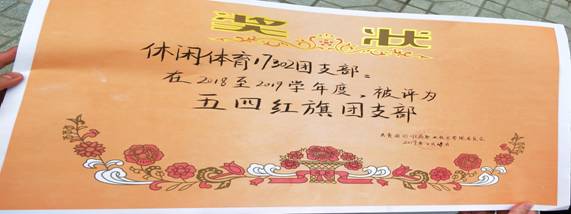 奖状
休闲体育17302团支部：
在2018至2019学年度，被评为
五四红旗团支部